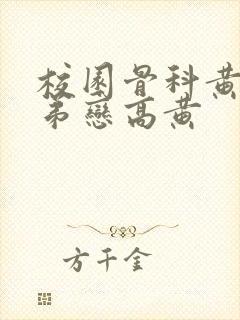 校園骨科黃
弟戀高黃
方千金